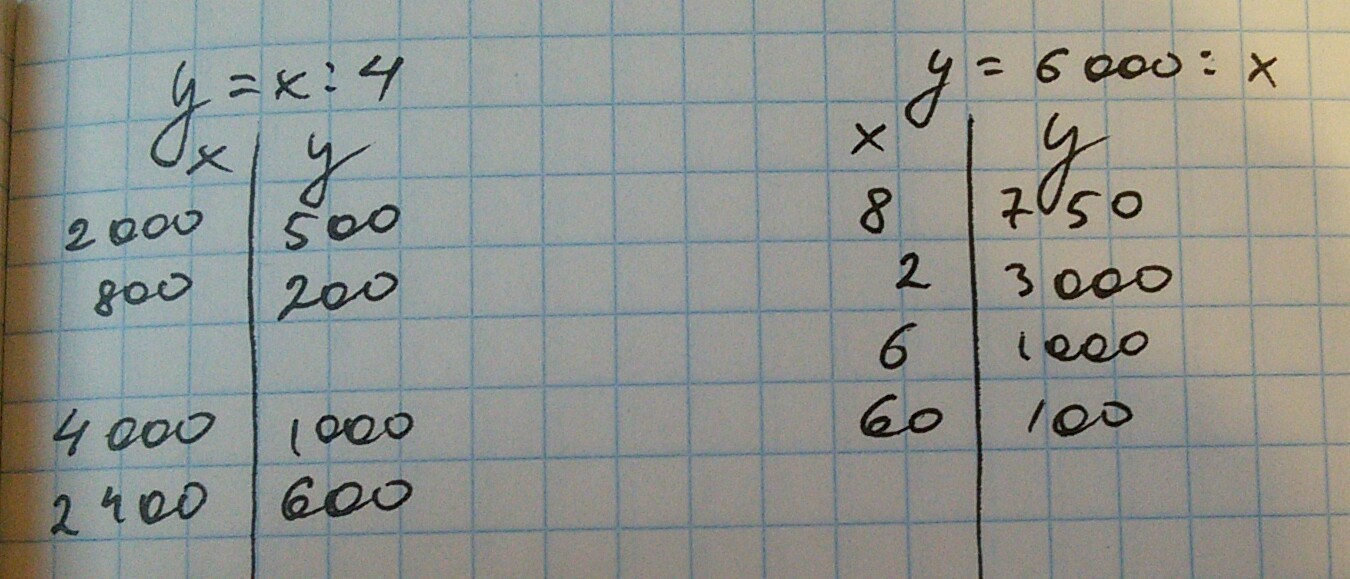 y = x : 4
x y
2000 500
800 200
4000 1000
2400 600
y = 6000 : x
x y
8 750
2 3000
6 1000
60 100